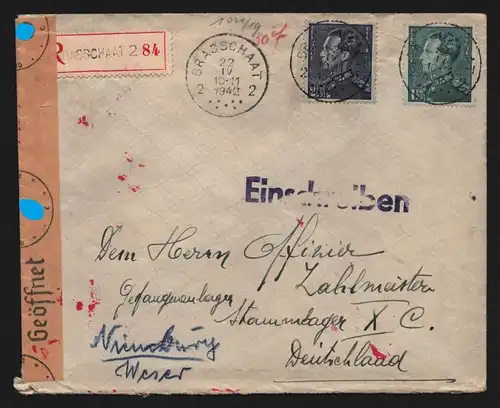 R BRASSCHAAT 2 84
BRASSCHAAT
22
IV
10-11
1942
2 2
Einschreiben
Dem Herrn Offizier
Zahlmeister
Gefangenenlager
Stammlager X C.
Nienburg
Weser
Deutschland
Geöffnet